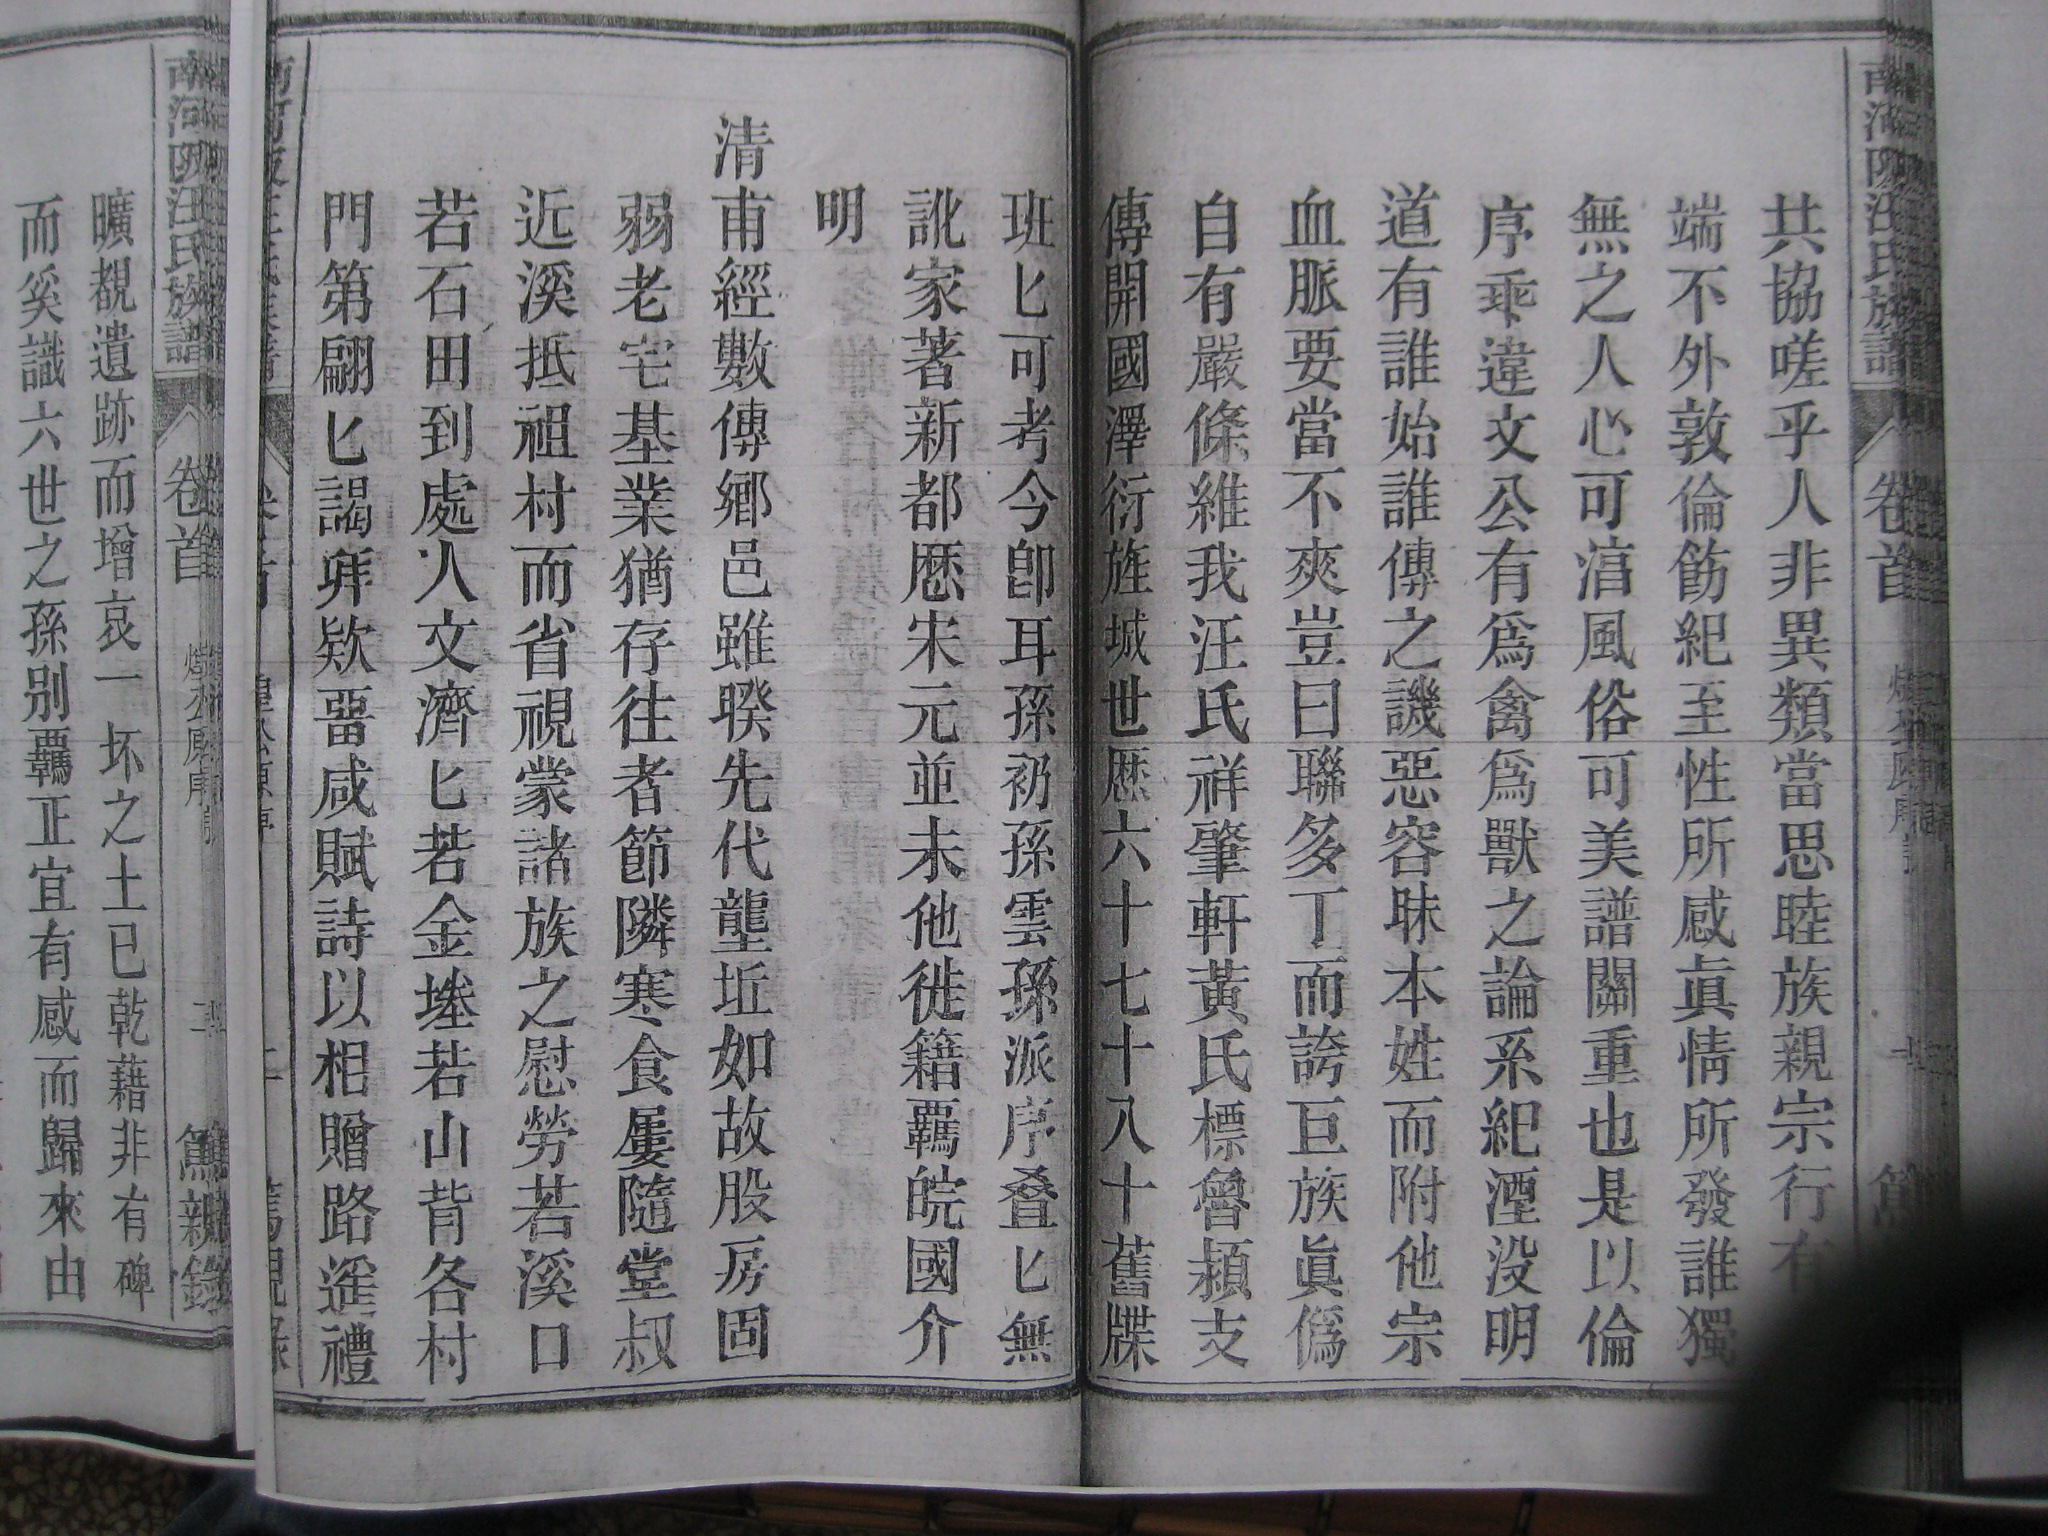 南河隈汪氏族譜
卷首
共協嗟乎人非異類當思睦族親宗行有
端不外敦倫飭紀至性所感眞情所發誰獨
無之人心可湻風俗可美譜關重也是以倫
序乖違文公有爲禽爲獸之論系紀湮没明
道有誰始誰傳之譏惡容昧本姓而附他宗
血脈要當不爽豈曰聯多丁而誇巨族眞僞
自有嚴條維我汪氏祥肇軒黃氏標魯頴支
傳開國澤衍旌城世歷六十七十八十舊牒
班匕可考今卽耳孫礽孫雲孫派序叠匕無
訛家著新都歷宋元並未他徙籍羈皖國介
明
清甫經數傳鄉邑雖暌先代壟坵如故股房固
弱老宅基業猶存往者節隣寒食屢隨堂叔
近溪抵祖村而省視蒙諸族之慰勞若溪口
若石田到處人文濟匕若金墶若山背各村
門第翩匕謁拜欵畱咸賦詩以相贈路遥禮
南河隈汪氏族譜
卷首
二
雋親錄
曠覩遺跡而增哀一坏之土已乾藉非有碑
而奚識六世之孫别羈正宜有感而歸來由